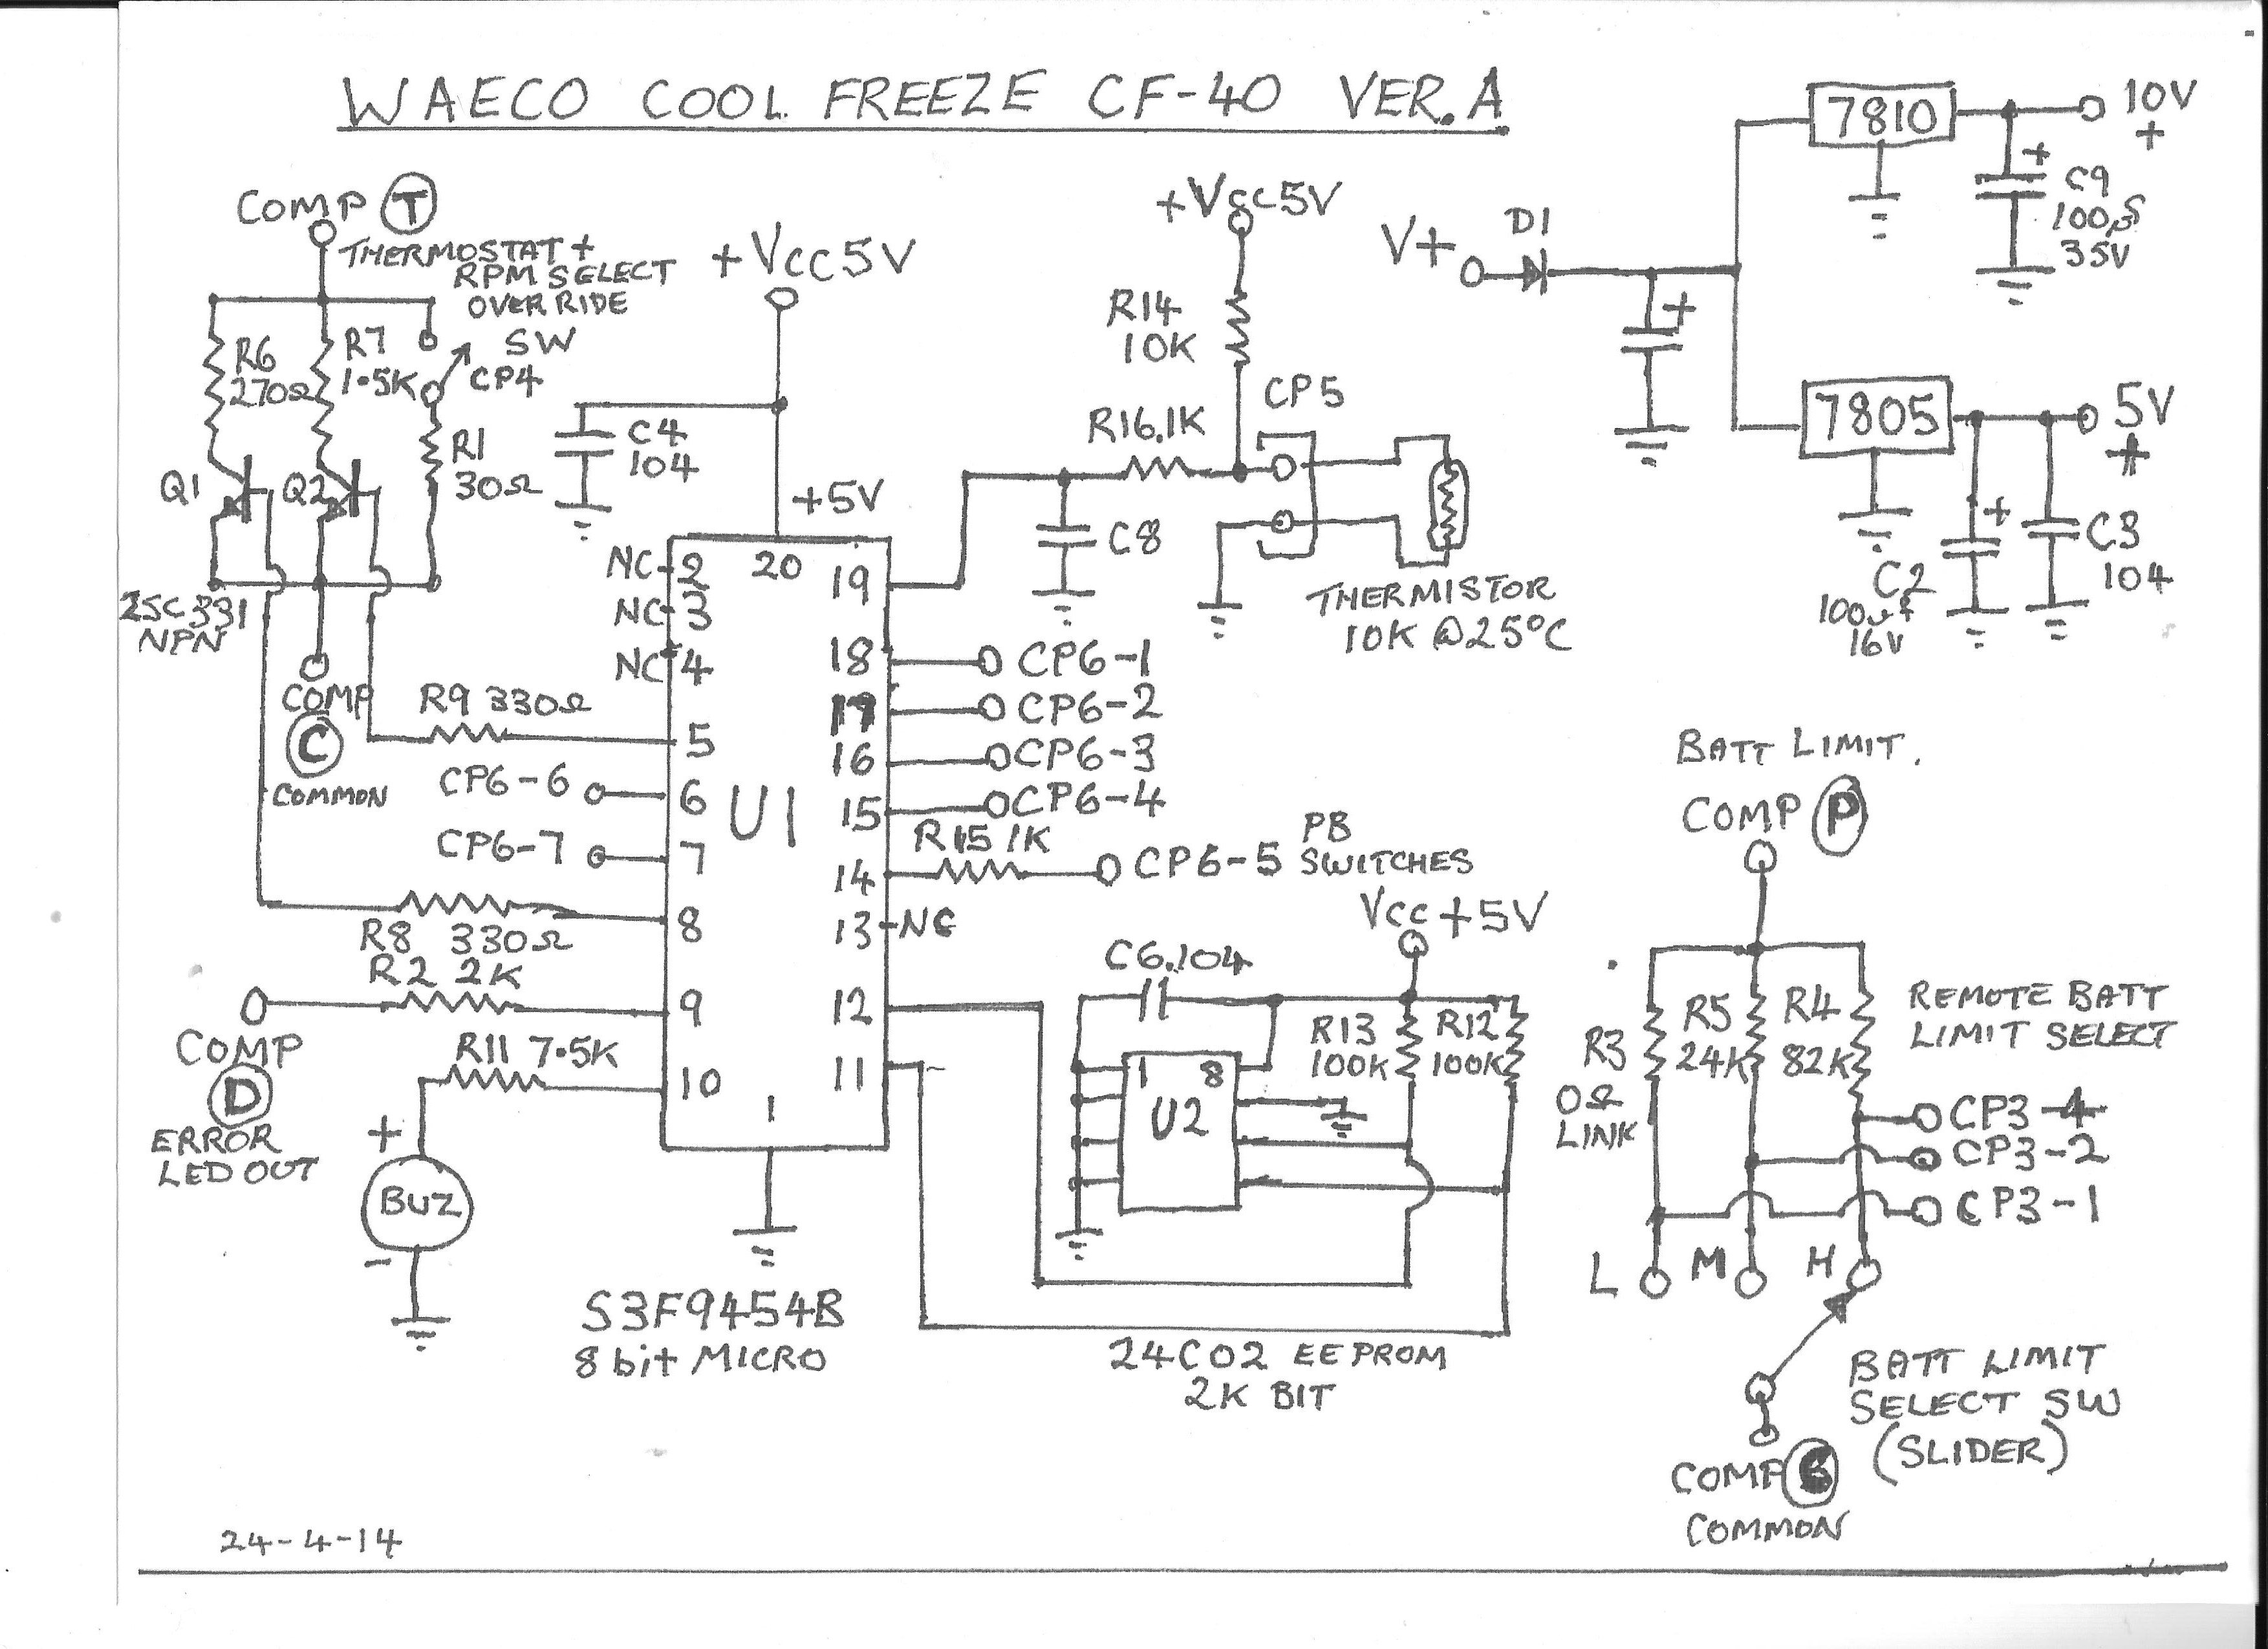 WAECO COOL FREEZE CF-40 VER. A
COMP T
THERMOSTAT +
RPM SELECT
OVER RIDE
SW
CP4
R6
270Ω
R7
1.5K
R1
30Ω
Q1
Q2
2SC331
NPN
COMP
C
COMMON
+VCC5V
C4
104
+5V
NC
NC
NC
2
3
4
5
6
7
8
9
10
20
19
18
17
16
15
14
13
12
11
1
U1
R9 330Ω
CP6-6
CP6-7
R8 330Ω
R2 2K
COMP
D
ERROR
LED OUT
R11 7.5K
+
BUZ
-
S3F9454B
8 bit MICRO
+Vcc5V
R14
10K
R16.1K
CP5
C8
THERMISTOR
10K @25°C
CP6-1
CP6-2
CP6-3
CP6-4
R15 1K
CP6-5
PB
SWITCHES
NC
Vcc +5V
C6.104
R13
100K
R12
100K
1
8
U2
24C02 EEPROM
2K BIT
V+
D1
+
7810
10V
+
+
C9
35V
7805
5V
+
+
C2
100uf
16V
C3
104
BATT LIMIT.
COMP P
R3
0Ω
LINK
R5
24K
R4
82K
REMOTE BATT
LIMIT SELECT
CP3-4
CP3-2
CP3-1
L
M
H
BATT LIMIT
SELECT SW
(SLIDER)
COMP C
COMMON
24-4-14